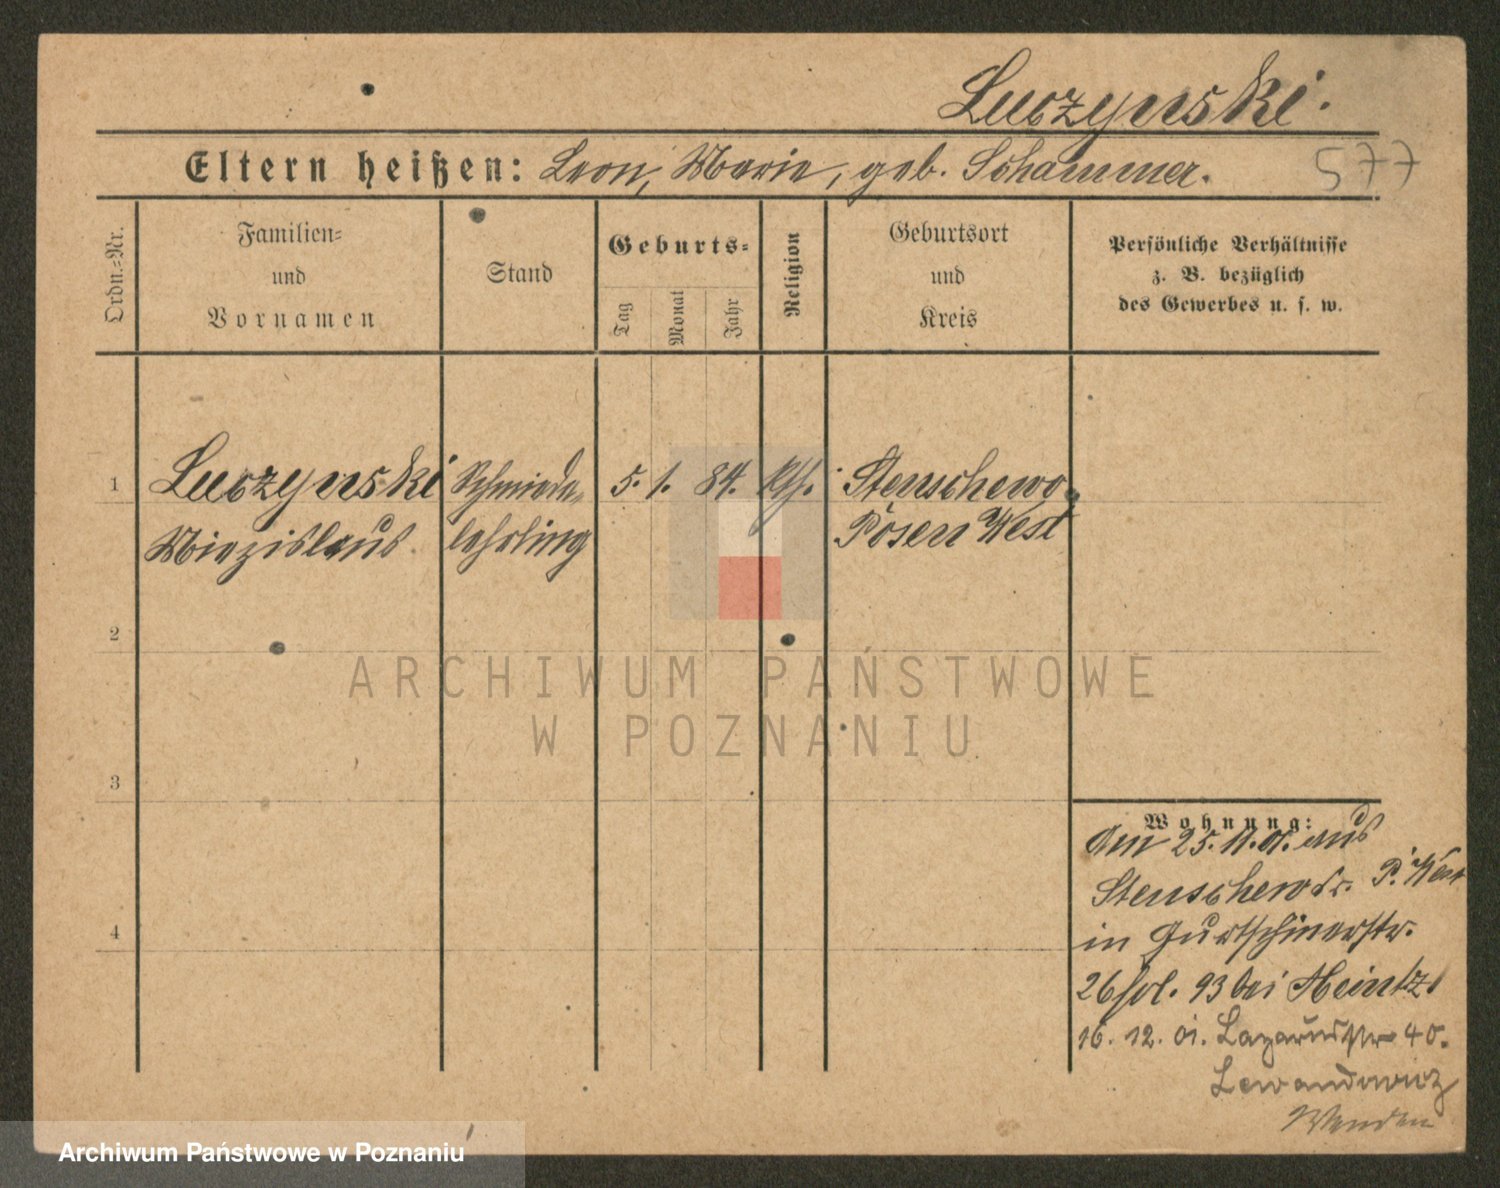 Luczynski.
Eltern heißen: Leon, Marie, geb. Schammer.
577
Ordn.-Nr.
Familien-
und
Vornamen
Stand
Geburts-
Tag
Monat
Jahr
Religion
Geburtsort
und
Kreis
Persönliche Verhältnisse
z. B. bezüglich
des Gewerbes u. s. w.
1
Luczynski
Miezislaus
Schmiede-
lehrling
5. 1. 84. kth.
Stenschewo
Posen West
2
ARCHIWUM PAŃSTWOWE
W POZNANIU
3
4
Wohnung:
Am 25.11.01. aus
Stenschewo P. West
in Gurtschinerstr.
26 fol. 93 bei Heintz
16. 12. 01. Lazarusstr 40.
Lewandowicz
Archiwum Państwowe w Poznaniu